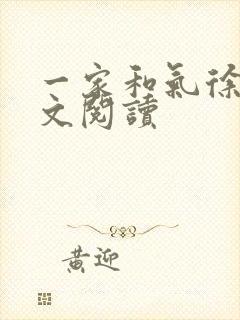 一家和氣徐
文閱讀
黃迎